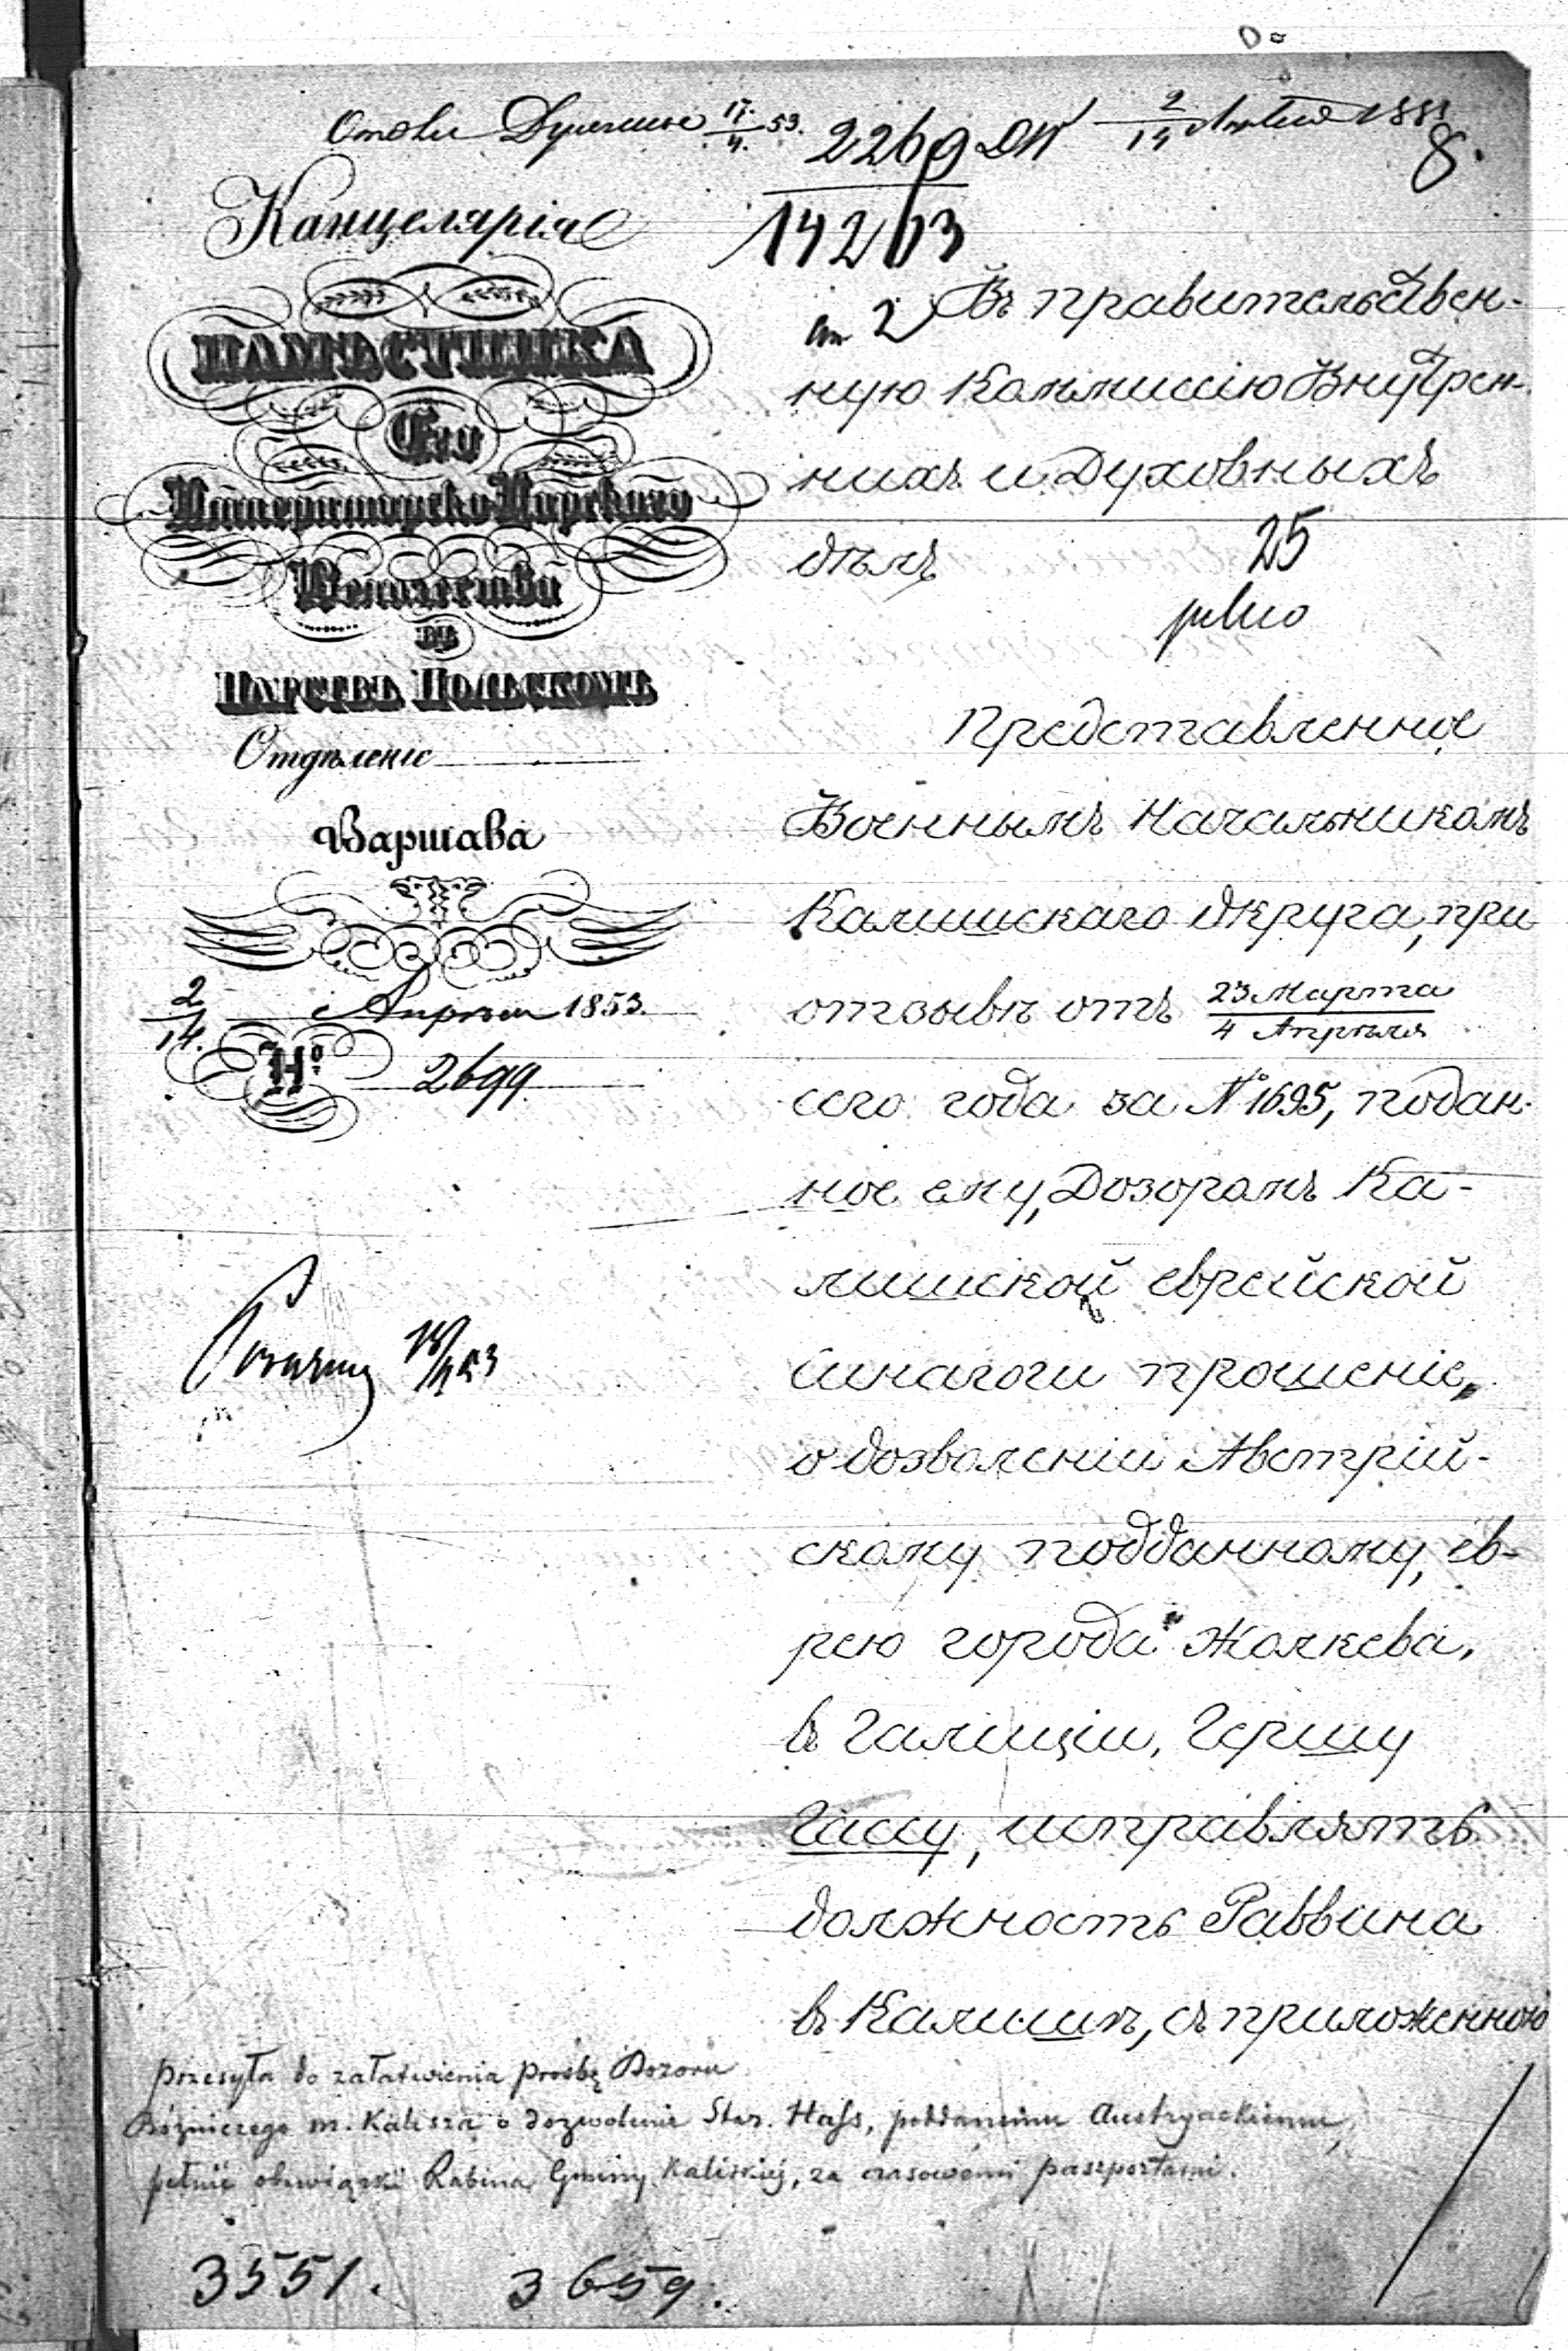 17/4 53.
2269 DW 2/14 1853
8.
14263
Канцелярія
НАМѢСТНИКА
Его
Императорско-Царскаго
Величества
въ
Царствѣ Польскомъ
Отдѣленіе
Варшава
2/14. Апрѣля 1853.
№ 2699
Въ Правительствен-
ную Коммиссію Внутрен-
нихъ и Духовныхъ
дѣлъ
25
pilno
Представленное
Военнымъ Начальникомъ
Калишскаго Округа, при
отзывѣ отъ 23 Марта/4 Апрѣля
сего года за № 1695, подан-
ное ему, Дозоромъ Ка-
лишской еврейской
синагоги прошеніе,
о дозволеніи Австрій-
скому подданному, ев-
рею города Жолкева,
въ Галиціи, Гершу
Гассу, исправлять
должность Раввина
въ Калишѣ, съ приложенною
przesyła do załatwienia prośbę Dozoru
Bóżniczego m. Kalisza o dozwolenie Haſs, poddanemu Austryackiemu,
pełnić obowiązki Rabina Gminy Kaliskiej, za czasowemi paszportami.
3551. 3659.